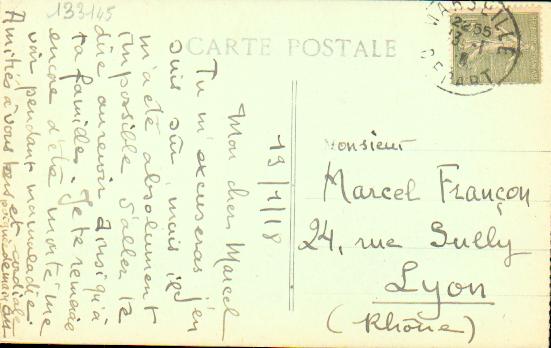 133145
CARTE POSTALE
MARSEILLE
22:55
13 - 1
DEPART
19/1/18
Mon cher Marcel
Tu m'excuseras j'en
suis sûr, mais il
m'a été absolument
impossible d'aller te
dire au revoir ainsi qu'à
ta famille. Je te remercie
encore d'être monté me
voir pendant ma maladie.
Amitiés à vous tous et cordiale
poignée de main
Monsieur
Marcel Françon
24, rue Sully
Lyon
(Rhône)